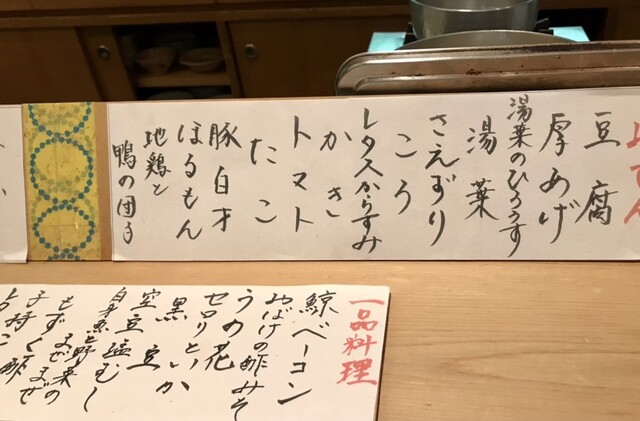 おでん
豆腐
厚あげ
湯葉のひろうす
湯葉
さえずり
ころ
レタスからすみ
かき
トマト
たこ
豚白才
ほるもん
地鶏と
鴨の団子
一品料理
鯨ベーコン
おばけの酢みそ
うの花
セロリといか
黒豆
空豆塩むし
白身魚と野菜の
もずくまぜまぜ